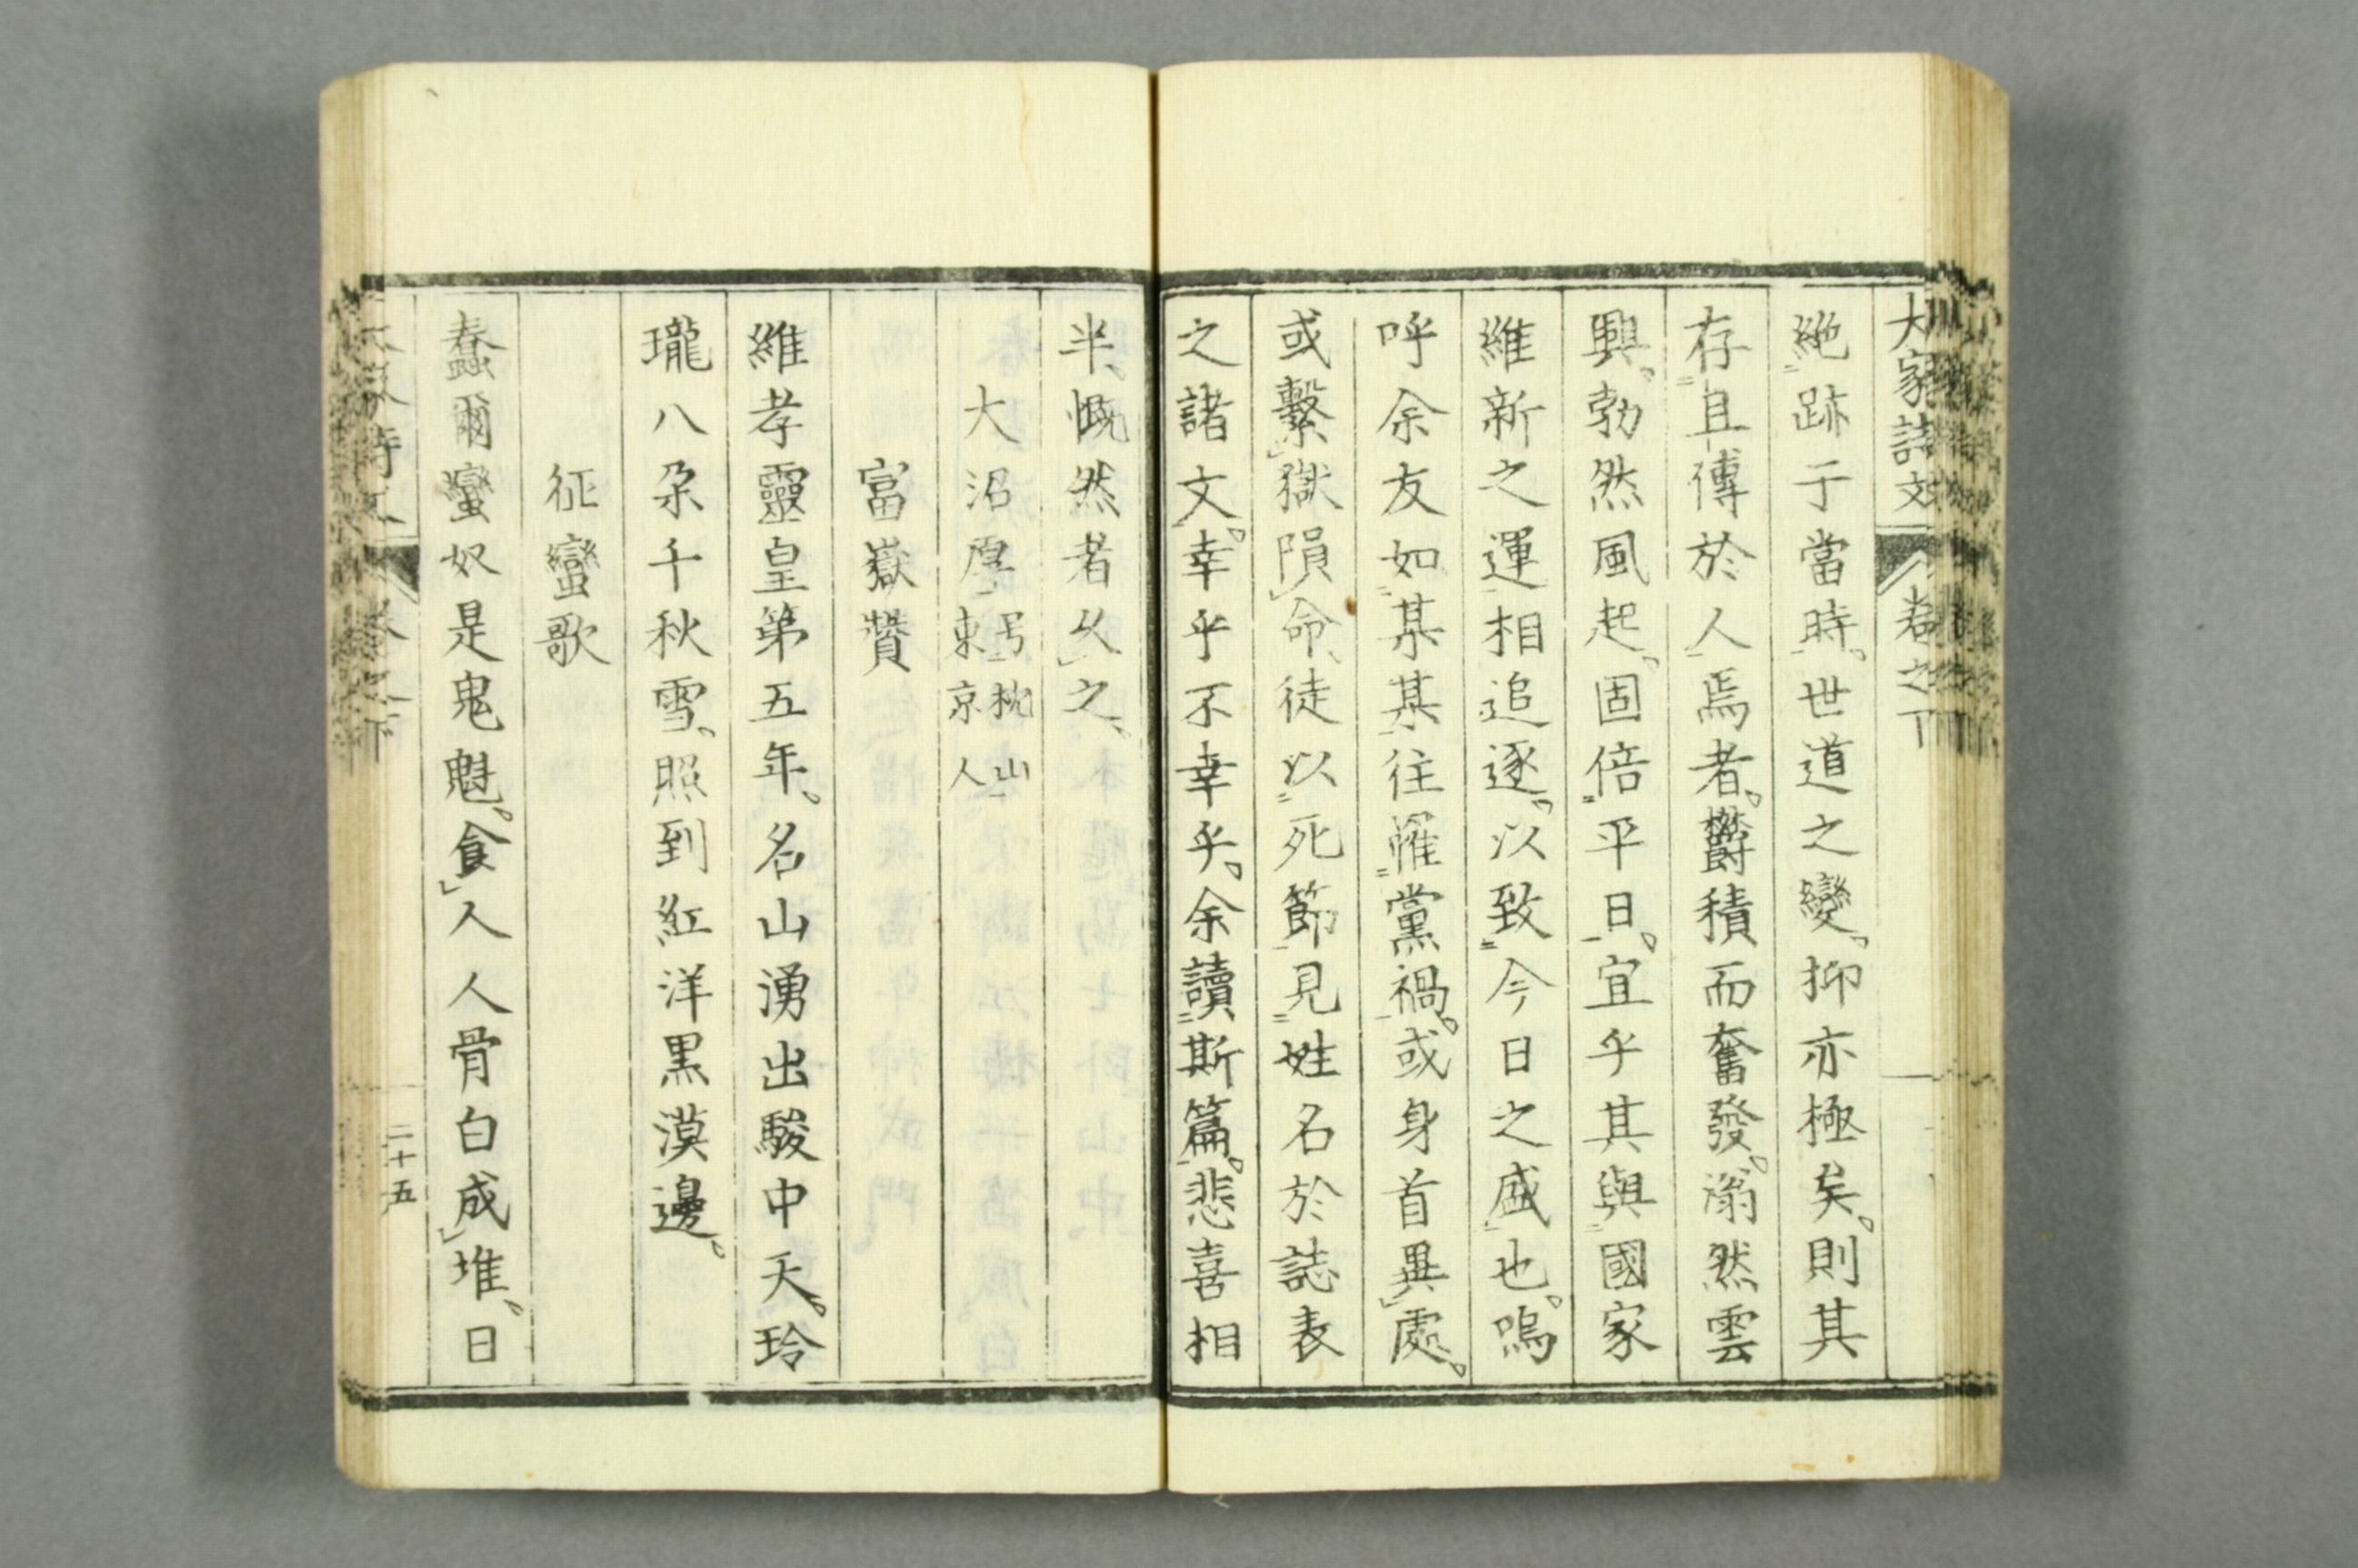 大家詩文 卷之下
絶跡于當時。世道之變。抑亦極矣。則其
存且傳於人焉者。欝積而奮發。滃然雲
興。勃然風起。固倍平日。宜乎其與國家
維新之運相追逐。以致今日之盛也。嗚
呼余友如某某往罹黨禍。或身首異處。
或繫獄隕命、徒以死節見姓名於誌表
之諸文。幸乎不幸乎。余讀斯篇。悲喜相
半、慨然者久之、
大沼厚 号枕山
東京人
富嶽贊
維孝靈皇第五年。名山湧出駿中天。玲
瓏八朶千秋雪、照到紅洋黒漠邊。
征蠻歌
蠢爾蠻奴是鬼魁。食人人骨白成堆。日
大家詩文 卷之下 二十五